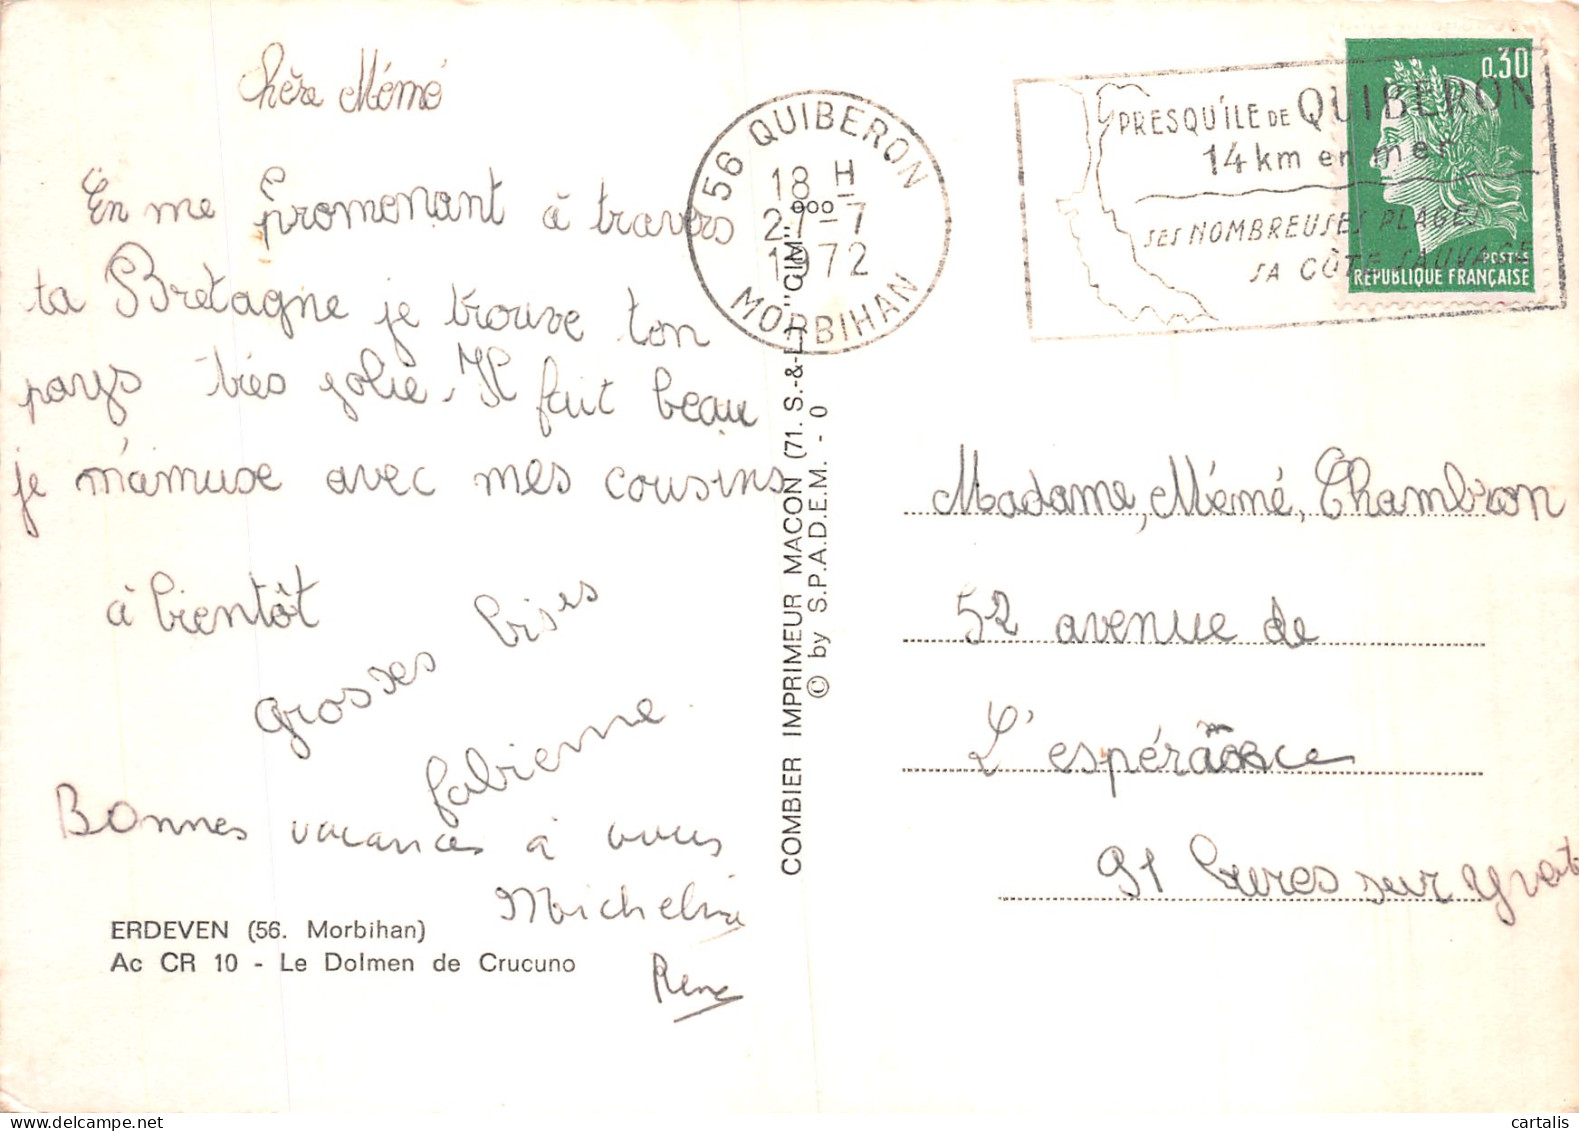 Chère Mémé
En me promenant à travers
ta Bretagne je trouve ton
pays très jolie. Il fait beau
je m'amuse avec mes cousins
à bientôt
grosses bises
fabienne
Bonnes vacances à vous
Micheline
René
ERDEVEN (56. Morbihan)
Ac CR 10 - Le Dolmen de Crucuno
COMBIER IMPRIMEUR MACON (71. S.-&-L.) "CIM"
© by S.P.A.D.E.M. - 0
56 QUIBERON
18 H
27-7
1972
MORBIHAN
PRESQU'ILE DE QUIBERON
14 km en mer
SES NOMBREUSES PLAGES
SA CÔTE SAUVAGE
0,30
POSTES
REPUBLIQUE FRANÇAISE
Madame, Mémé, Chambron
52 avenue de
L'espérance
91 bures sur yvette
cartalis
www.delcampe.net